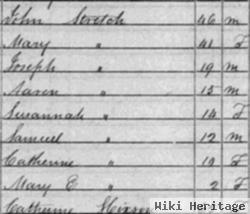 John Stretch 46 m
Mary " 41 F
Joseph " 19 m
Aaron " 15 m
Susannah " 14 F
Samuel " 12 m
Catherine " 10 F
Mary E " 2 F
Catharine Hixson
Wiki Heritage